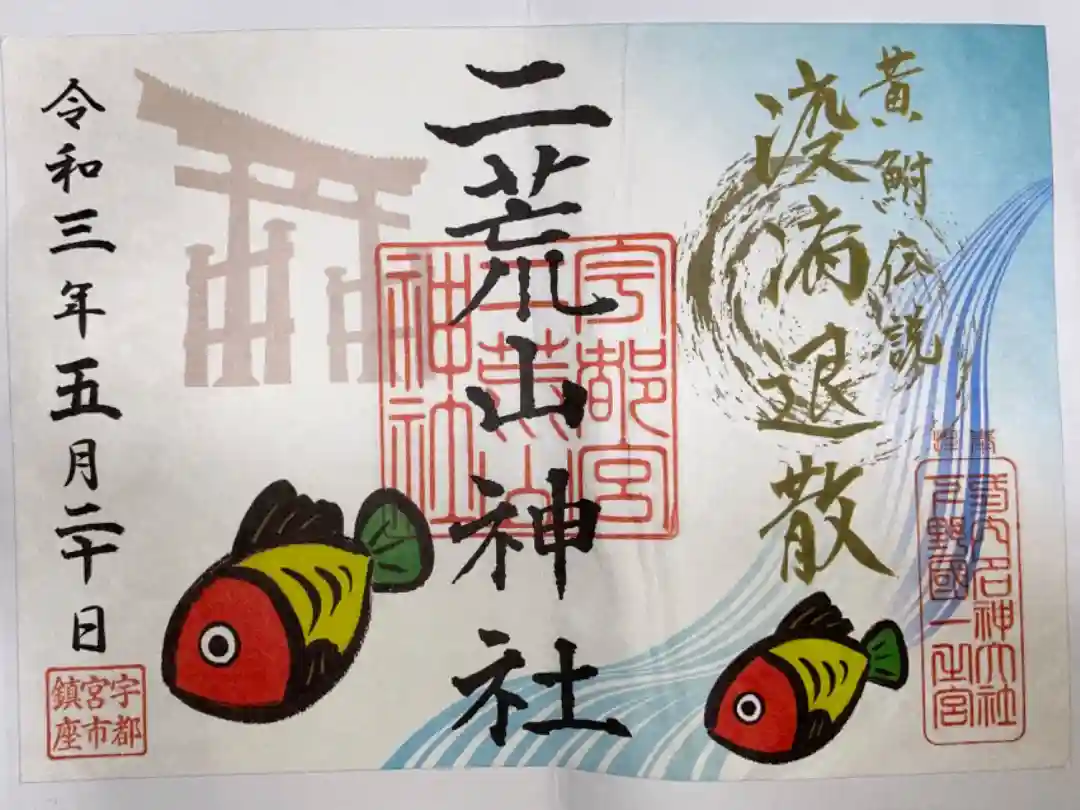 黄鮒伝説
疫病退散
奉拝
式内名神大社
下野國一之宮
二荒山神社
宇都宮
二荒山
神社
令和三年五月二十日
宇都
宮市
鎮座